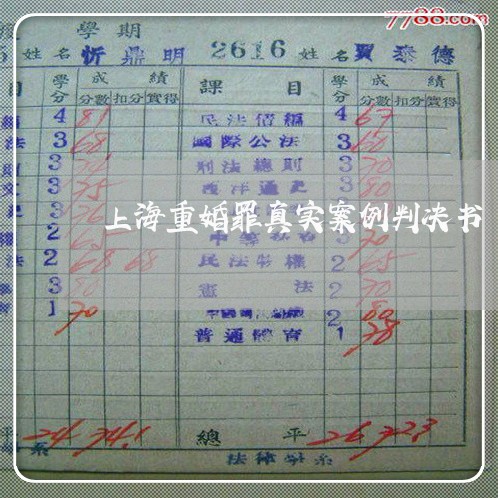 7788.com
學期
姓名 忻鼎明 2616 姓名 賈泰德
目 學分 成績 課目 學分 成績
分數 扣分 實得 分數 扣分 實得
4 81 民法債編 4 67
法 3 68 國際公法 3 60
則 3 刑法總則 3 70
3 75 西洋通史 3 80
3 76
上海重婚罪真实案例判决书
2 65 70
法 2 68 68 民法物權 2 65
3 80 憲法 2 70
1 70 2 80
普通體育 1 78
平 24 74.1 總平 26 72.3
系 法律學系